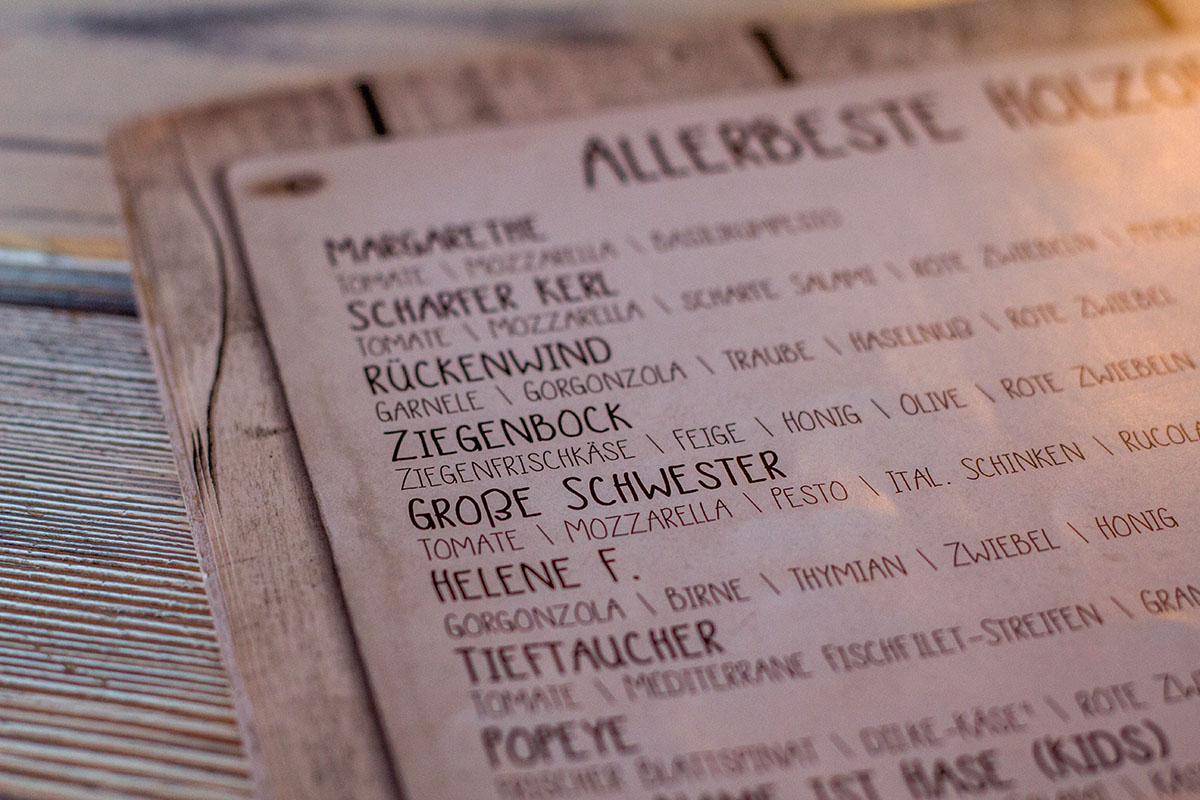 ALLERBESTE
MARGARETHE
TOMATE \ MOZZARELLA \ BASILIKUMPESTO
SCHARFER KERL
TOMATE \ MOZZARELLA \ SCHARFE SALAMI \ ROTE ZWIEBELN \
RÜCKENWIND
GARNELE \ GORGONZOLA \ TRAUBE \ HASELNUß \ ROTE ZWIEBEL
ZIEGENBOCK
ZIEGENFRISCHKÄSE \ FEIGE \ HONIG \ OLIVE \ ROTE ZWIEBELN
GROßE SCHWESTER
TOMATE \ MOZZARELLA \ PESTO \ ITAL. SCHINKEN \ RUCOLA
HELENE F.
GORGONZOLA \ BIRNE \ THYMIAN \ ZWIEBEL \ HONIG
TIEFTAUCHER
TOMATE \ MEDITERRANE FISCHFILET-STREIFEN \
POPEYE
FRISCHER BLATTSPINAT \ \ ROTE
IST HASE (KIDS)